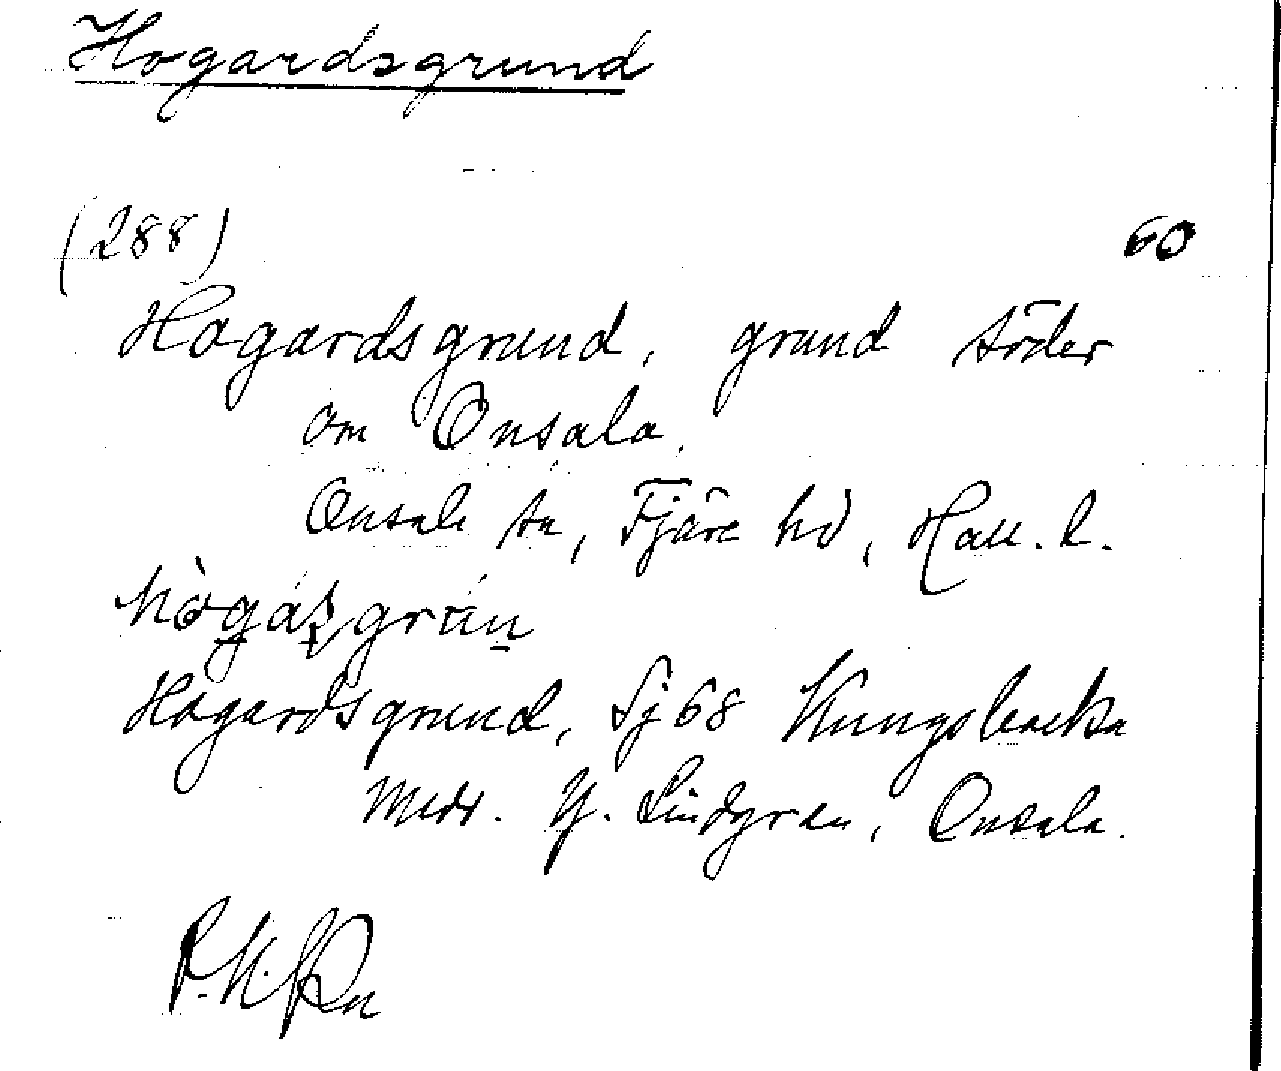 Hogardsgrund
(288) 60
Hogardsgrund, grund söder
om Onsala.
Onsala sn, Fjäre hd, Hall. l.
Hogardsgrund, Sj 68 Kungsbacka
Medd. Y. Lindgren, Onsala.